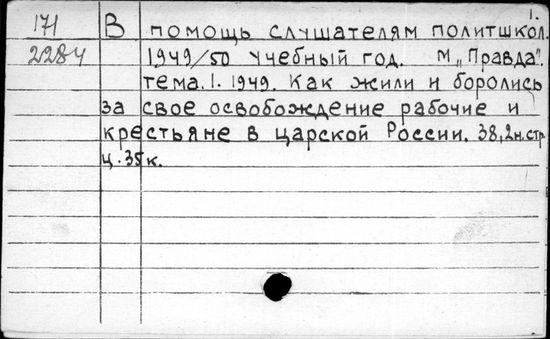 1.
171 В помощь слушателям политшкол.
2284 1949/50 учебный год. М „Правда".
тема. 1. 1949. Как жили и боролись
за свое освобождение рабочие и
крестьяне в царской России. 38,2н.стр
ц. 35к.